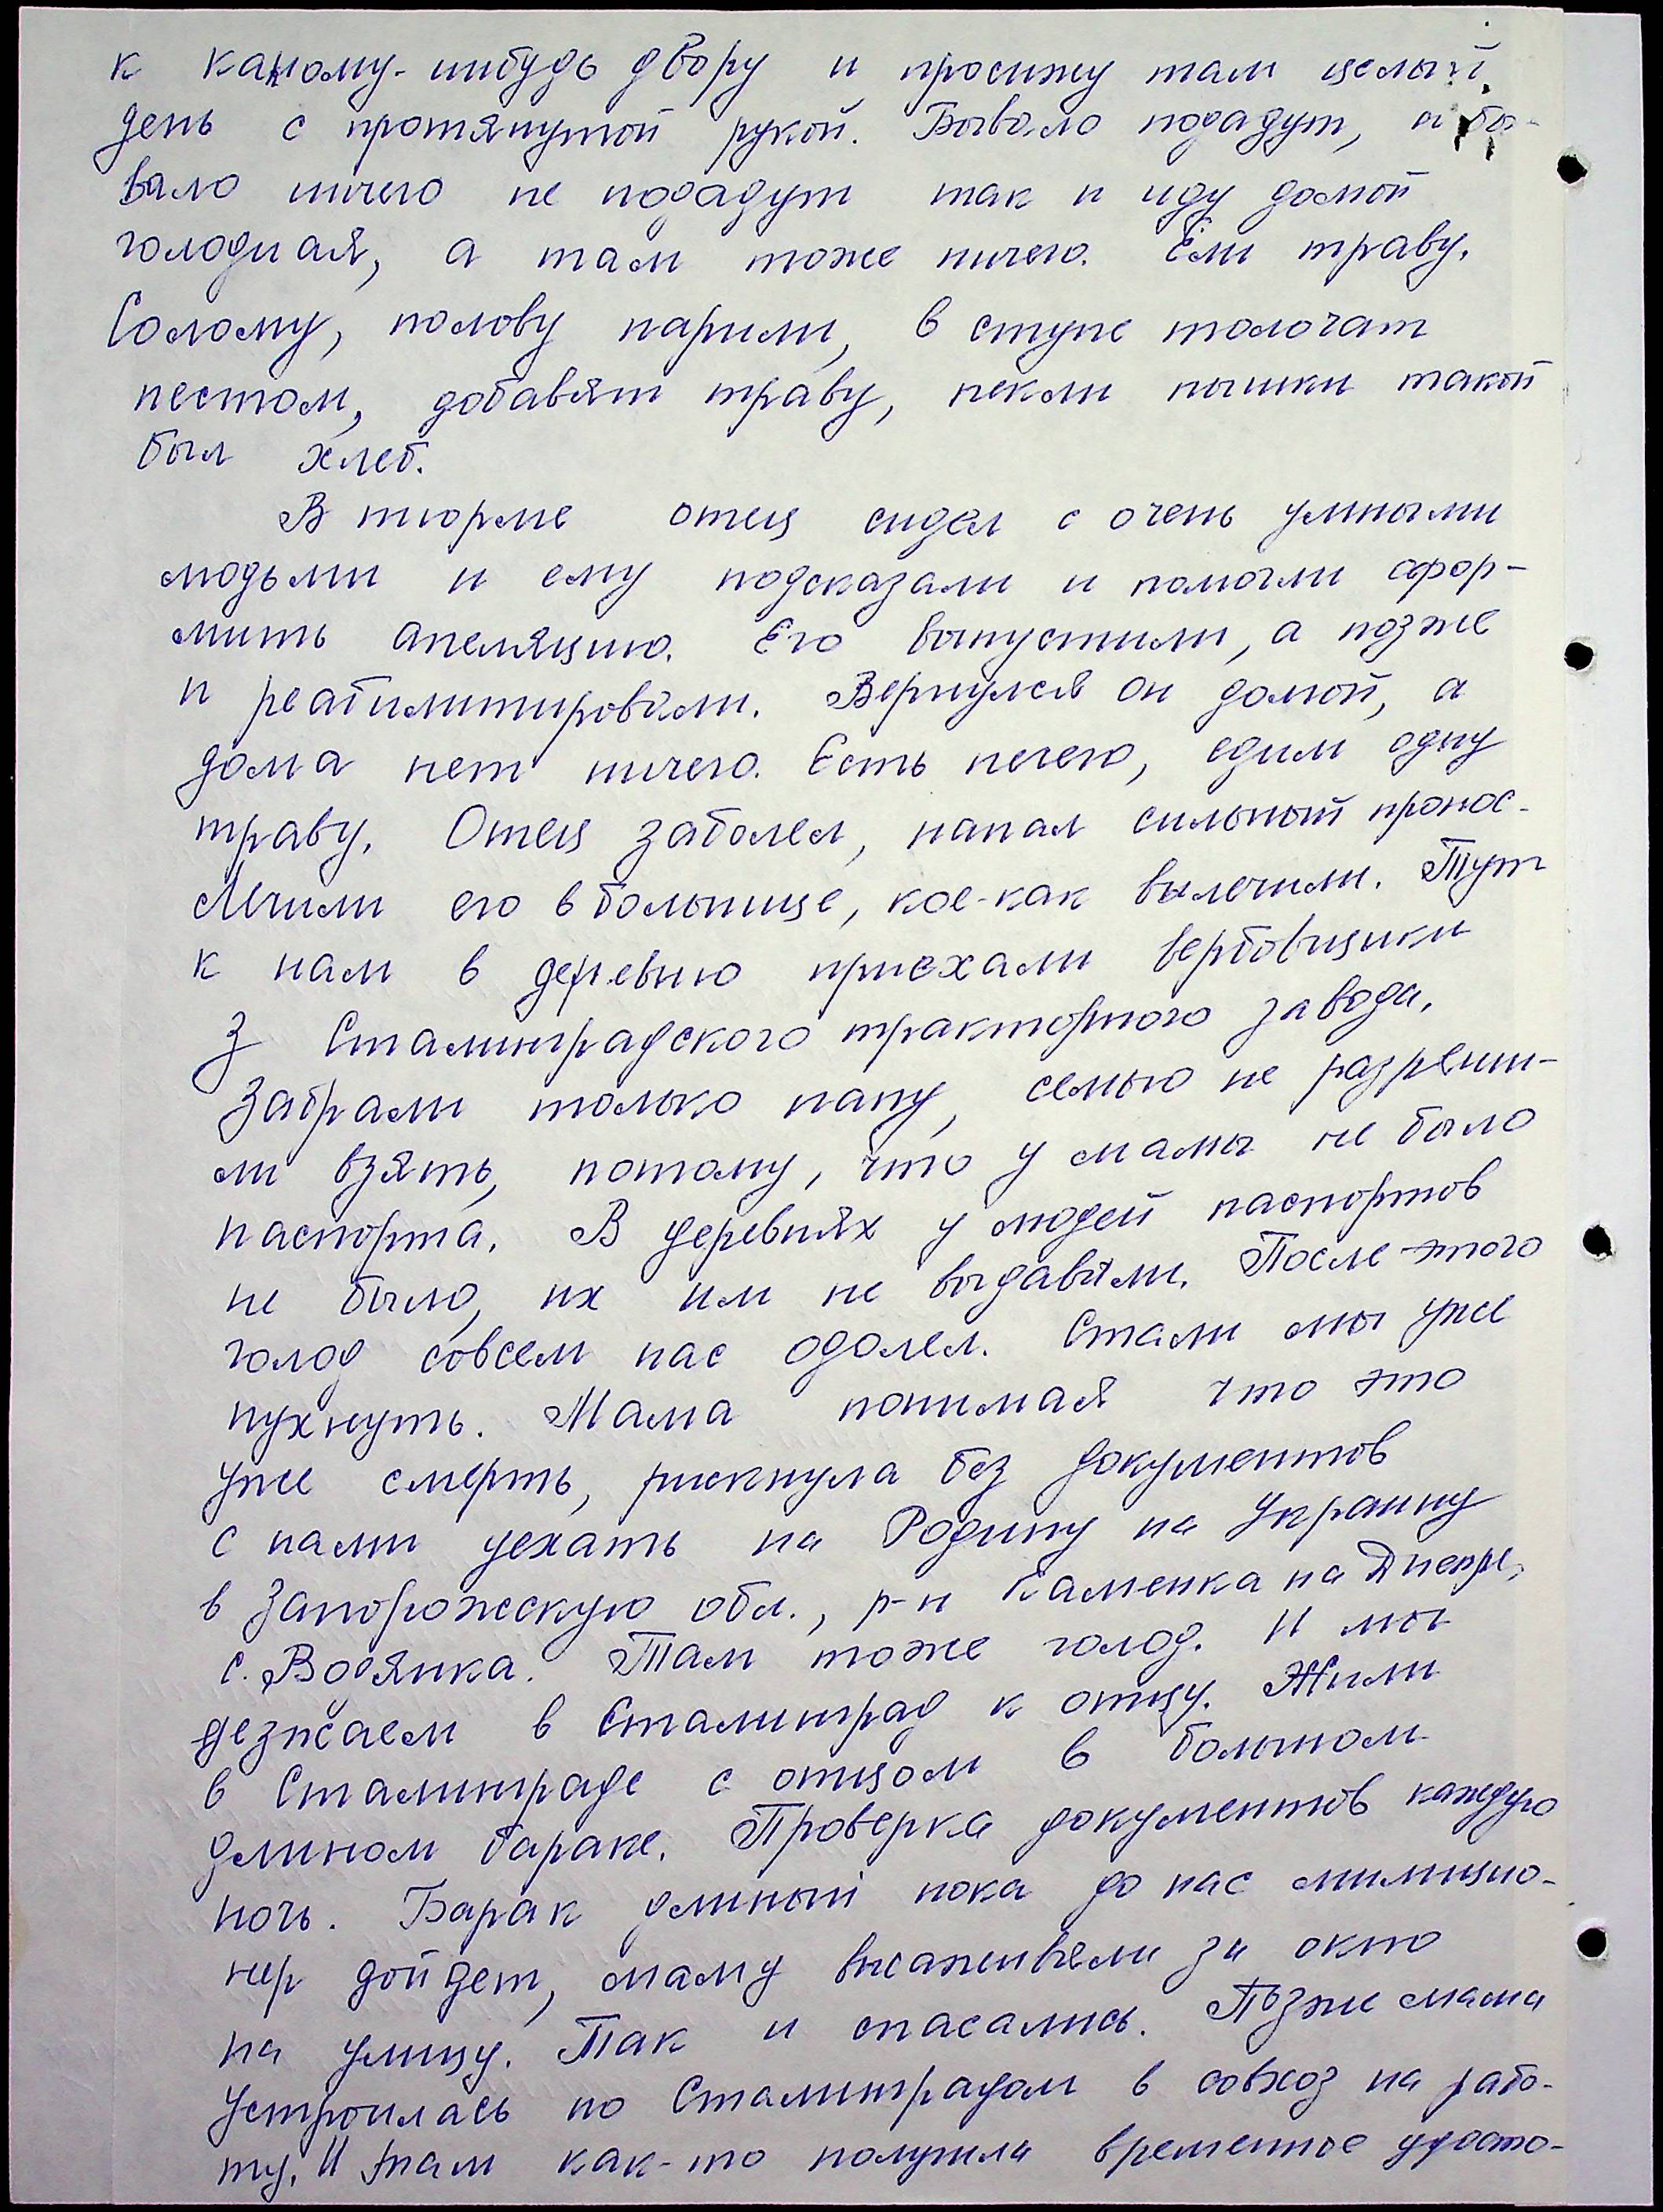 к какому-нибудь двору и просижу там целый
день с протянутой рукой. Бывало подадут, а бы-
вало ничего не подадут так и иду домой
голодная, а там тоже ничего. Ели траву.
Солому, полову парили, в ступе толочат
пестом, добавят траву, пекли пышки такой
был хлеб.
В тюрме отец сидел с очень умными
людьми и ему подсказали и помогли офор-
мить апеляцию. Его выпустили, а позже
и реабилитировали. Вернулся он домой, а
дома нет ничего. Есть нечего, едим одну
траву. Отец заболел, напал сильный понос.
Лечили его в больнице, кое-как вылечили. Тут
к нам в деревню приехали вербовщики
з Сталинградского тракторного завода.
Забрали только папу, семью не разреши-
ли взять, потому, что у мамы не было
паспорта. В деревнях у людей паспортов
не было, их им не выдавали. После этого
голод совсем нас одолел. Стали мы уже
пухнуть. Мама понимая что это
уже смерть, рискнула без документов
с нами уехать на Родину на Украину
в Запорожскую обл., р-н Каменка на Днепре,
с. Водянка. Там тоже голод. И мы
уезжаем в Сталинград к отцу. Жили
в Сталинграде с отцом в большом
длином бараке. Проверка документов каждую
ночь. Барак длиный пока до нас милицио-
нер дойдет, маму высаживали за окно
на улицу. Так и спасались. Позже мама
устроилась по Сталинградом в совхоз на рабо-
ту. И там как-то получила временное удосто-